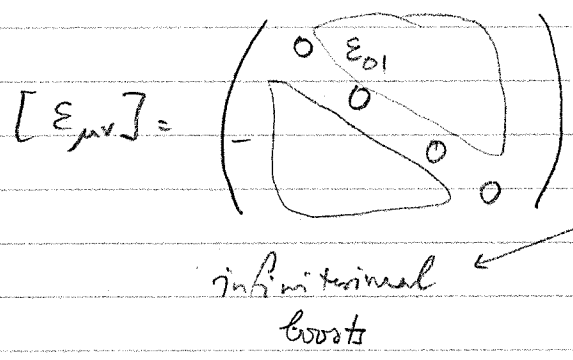 [ε_{μν}] = ( 0 ε_{01}
0
- 0
0 )
infinitesimal
boosts